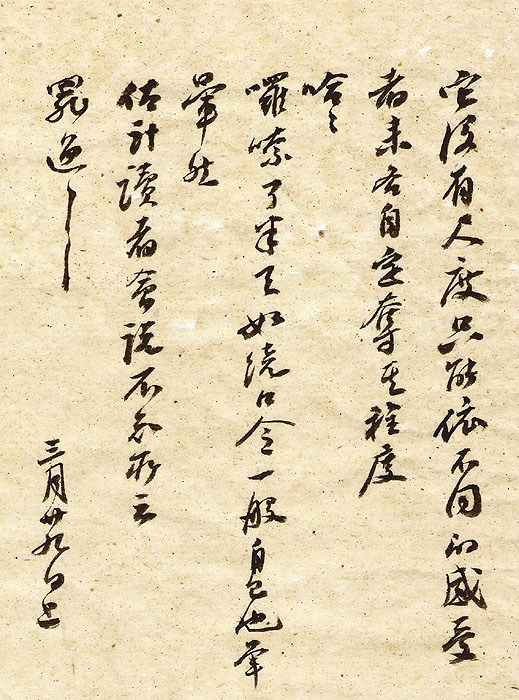 它沒有尺度只能依不同的感受
者來各自定奪其程度
哈々
囉嗦了半天如繞口令一般自己也暈
暈然
估計讀者會說不知所云
罪過——
三月廿九日